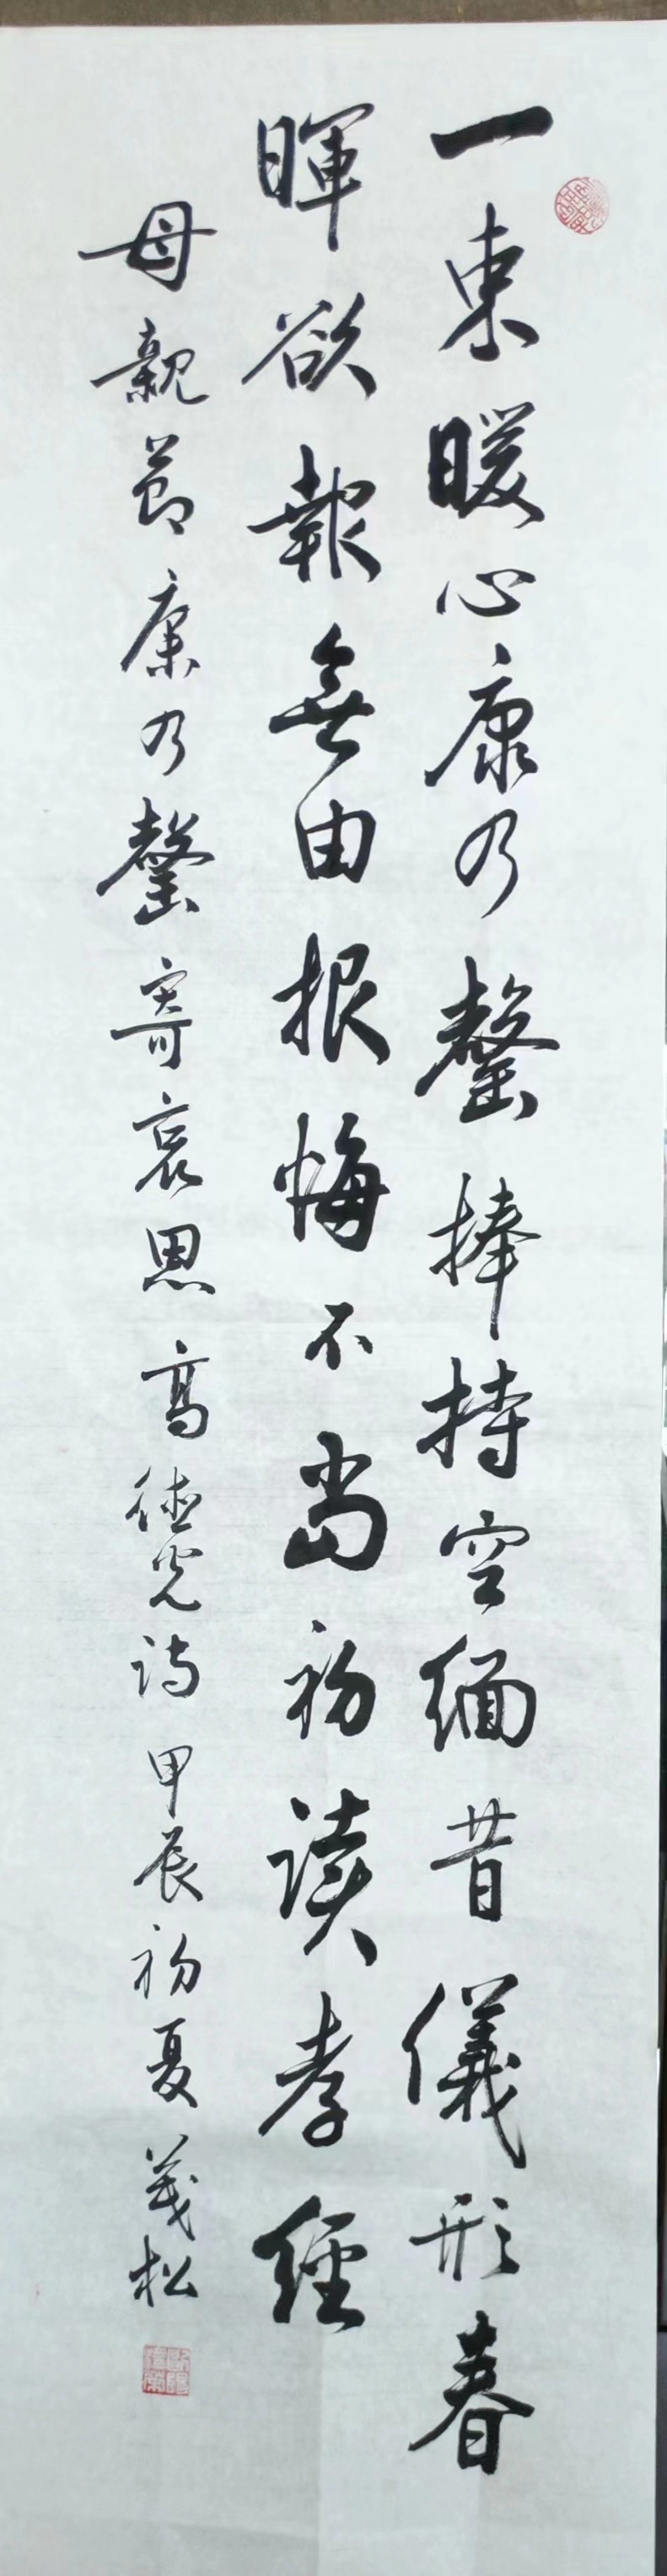 一束暖心康乃罄捧持空緬昔儀形春
暉欲報無由报悔不當初讀孝經
母親節康乃罄寄哀思高德光诗甲辰初夏義松